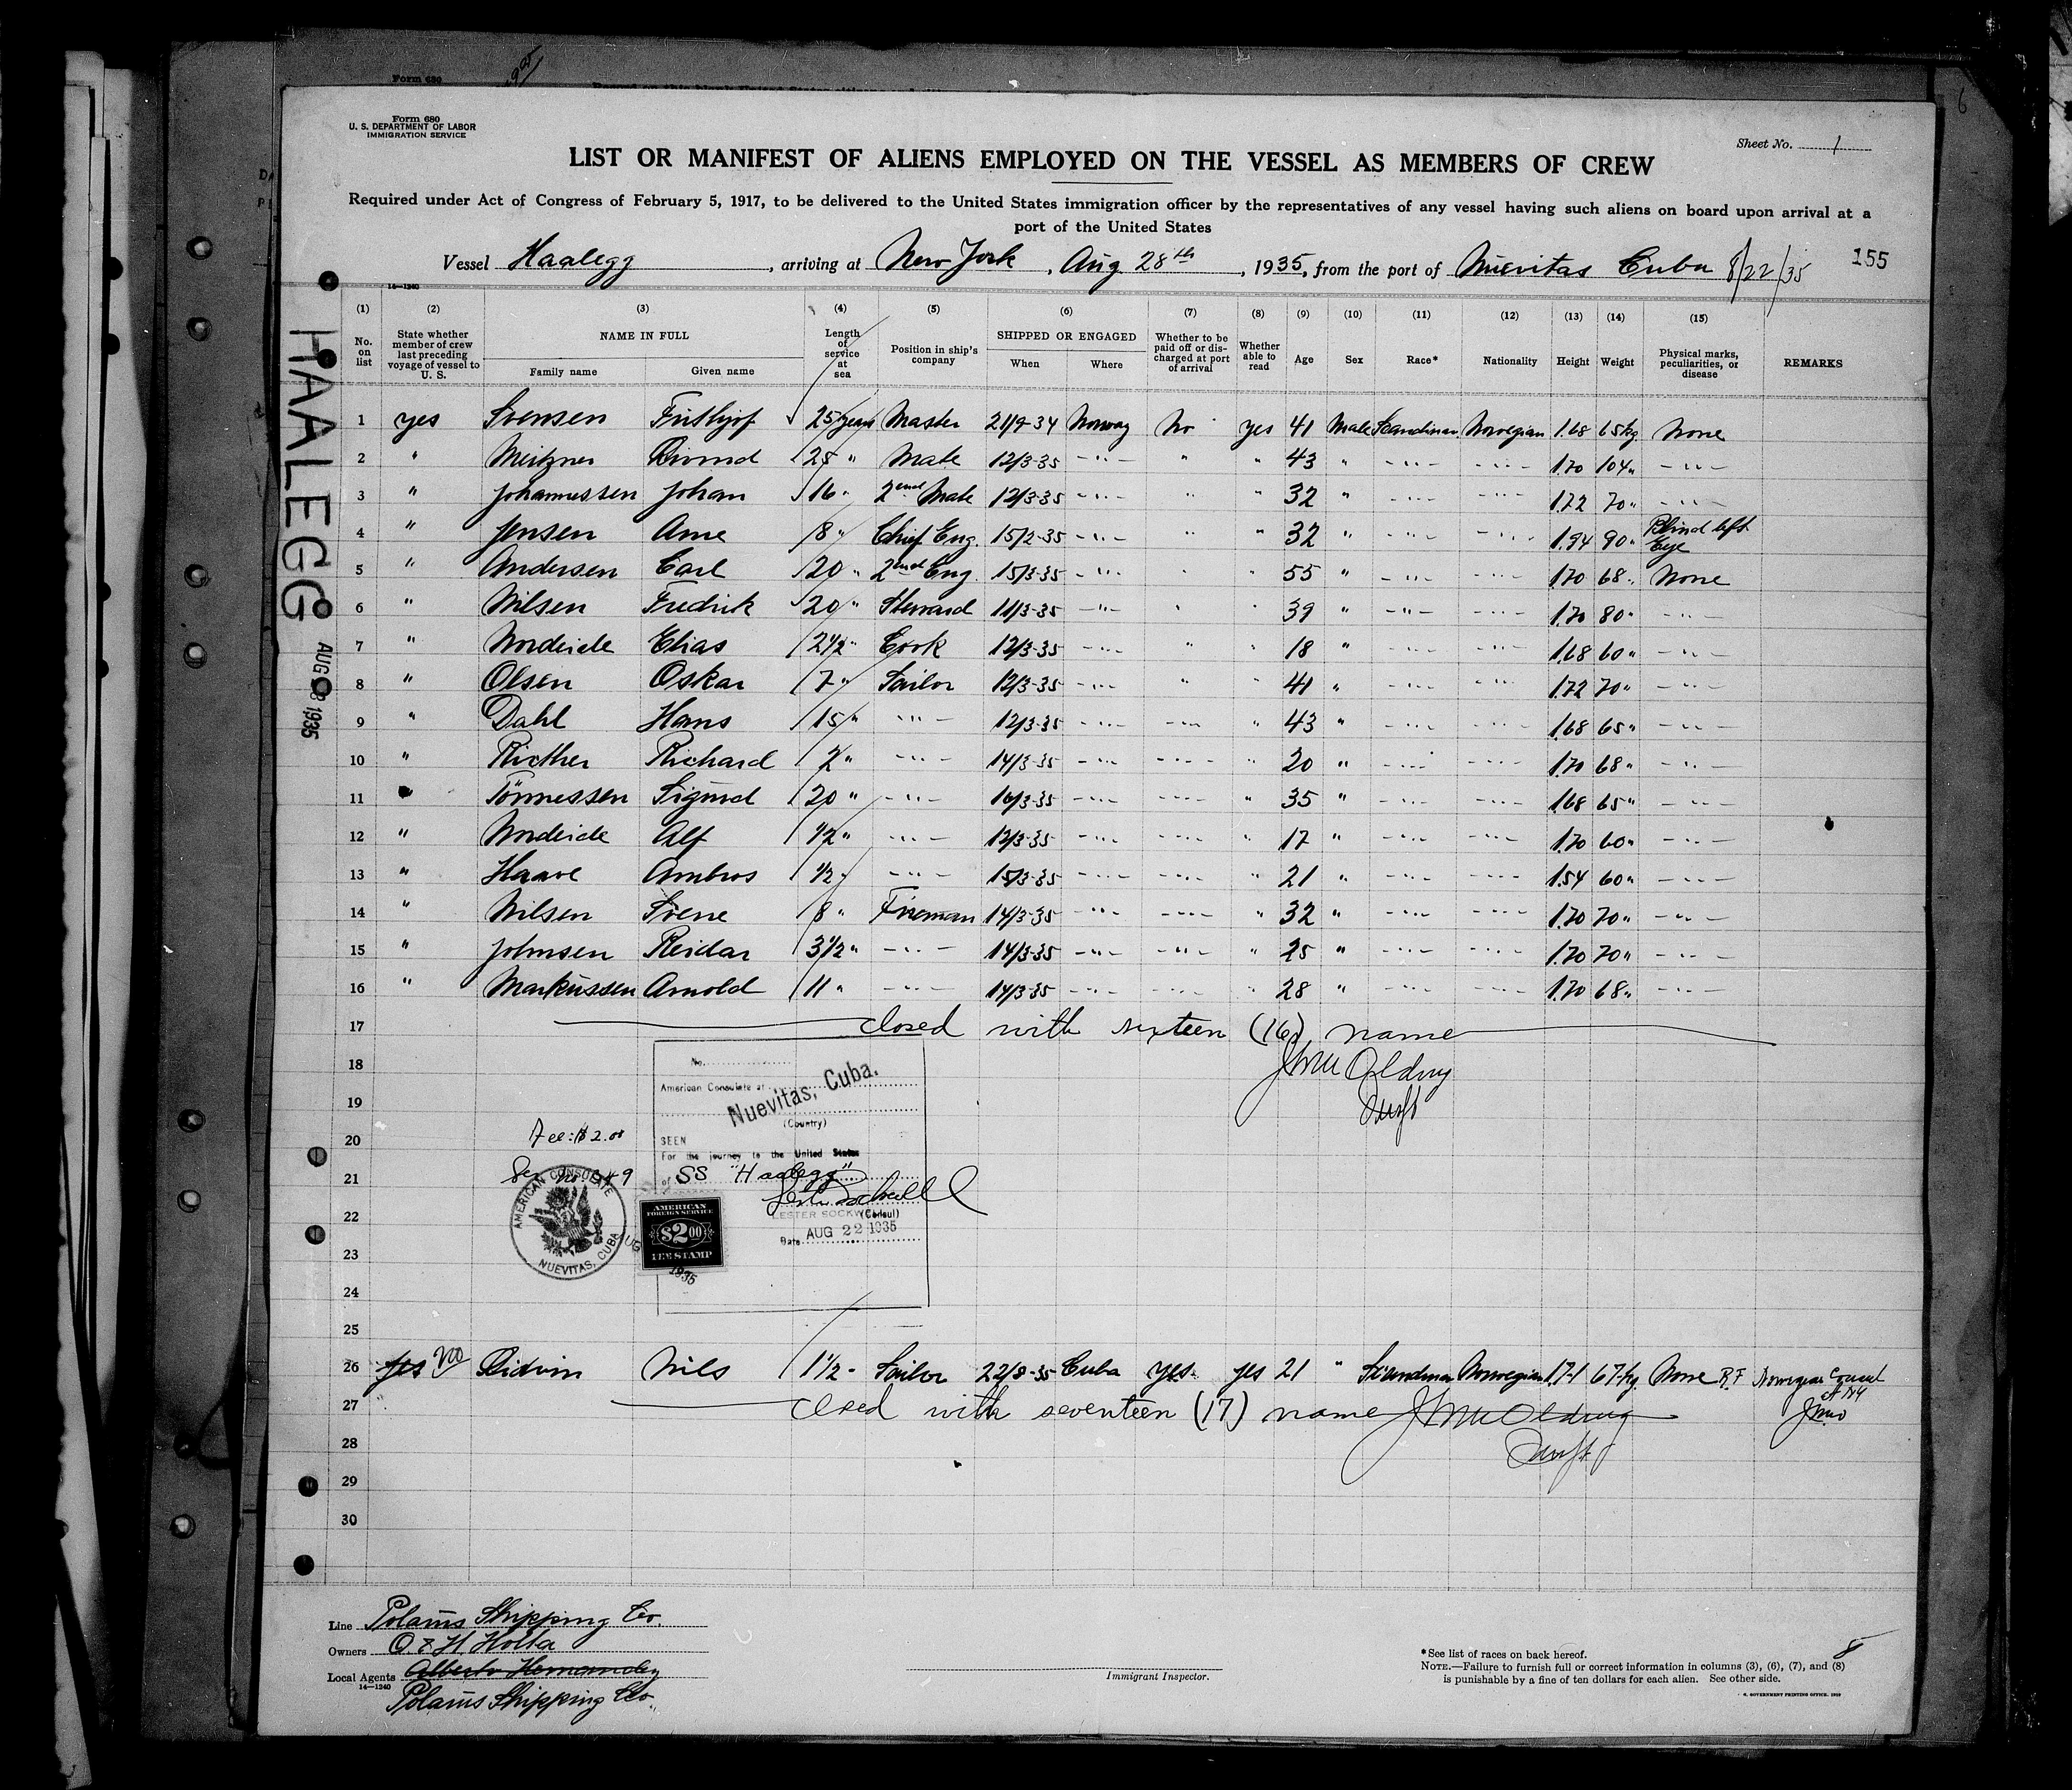 Form 680
U. S. DEPARTMENT OF LABOR
IMMIGRATION SERVICE
Sheet No. 1
LIST OR MANIFEST OF ALIENS EMPLOYED ON THE VESSEL AS MEMBERS OF CREW
Required under Act of Congress of February 5, 1917, to be delivered to the United States immigration officer by the representatives of any vessel having such aliens on board upon arrival at a
port of the United States
Vessel Haalegg, arriving at New York, Aug 28th, 1935, from the port of Nuevitas Cuba 8/22/35 155
14—1240
(1) (2) (3) (4) (5) (6) (7) (8) (9) (10) (11) (12) (13) (14) (15)
No. on list State whether member of crew last preceding voyage of vessel to U. S. NAME IN FULL Family name Given name Length of service at sea Position in ship's company SHIPPED OR ENGAGED When Where Whether to be paid off or discharged at port of arrival Whether able to read Age Sex Race* Nationality Height Weight Physical marks, peculiarities, or disease REMARKS
HAALEGG
AUG 28 1935
1 yes Svensen Frithjof 25 years Master 21/9-34 Norway No yes 41 Male Scandinav Norwegian 1.68 65 kg None
2 " Meitzner 25 " Mate 12/3-35 -"- " " 43 " -"- -"- 1.70 104 " -"-
3 " Johannessen Johan 16 " 2end Mate 12/3-35 -"- " " 32 " -"- -"- 1.72 70 " -"-
4 " Jensen Arne 8 " Chief Eng. 15/2-35 -"- " " 32 " -"- -"- 1.84 90 " Blind left Eye
5 " Andersen Carl 20 " 2end Eng. 15/3-35 -"- " " 55 " -"- -"- 1.70 68 " None
6 " Nilsen Fredrik 20 " Steward 11/3-35 -"- " " 39 " -"- -"- 1.70 80 " -"-
7 " Nordeide Elias 2 1/2 " Cook 12/3-35 -"- " " 18 " -"- -"- 1.68 60 " -"-
8 " Olsen Oskar 7 " Sailor 12/3-35 -"- " " 41 " -"- -"- 1.72 70 " -"-
9 " Dahl Hans 15 " -"- 12/3-35 -"- -"- " 43 " -"- -"- 1.68 65 " -"-
10 " Ricther Richard 2 " -"- 14/3-35 -"- -"- " 20 " -"- -"- 1.70 68 " -"-
11 " Tönnessen Sigurd 20 " -"- 16/3-35 -"- -"- " 35 " -"- -"- 1.68 65 " -"-
12 " Nordeide Alf 1/2 " -"- 12/3-35 -"- -"- " 17 " -"- -"- 1.70 60 " -"-
13 " Haave Ambros 1/2 " -"- 15/3-35 -"- -"- " 21 " -"- -"- 1.54 60 " -"-
14 " Nilsen Svene 8 " Fireman 14/3-35 -"- -"- " 32 " -"- -"- 1.70 70 " -"-
15 " Johnsen Reidar 3 1/2 " -"- 14/3-35 -"- -"- " 25 " -"- -"- 1.70 70 " -"-
16 " Markussen Arnold 11 " -"- 14/3-35 -"- -"- " 28 " -"- -"- 1.70 68 " -"-
17 closed with sixteen (16) name
18
19
20
21
22
23
24
25
No.
American Consulate at
Nuevitas, Cuba.
(Country)
SEEN
For the journey to the United States
of SS "Haalegg"
LESTER SOCKWELL (Consul)
Date AUG 22 1935
Fee: $2.00
AMERICAN CONSULATE
NUEVITAS, CUBA
AMERICAN
FOREIGN SERVICE
$2.00
FEE STAMP
1935
26 yes no Eidvin Nils 1 1/2 - Sailor 22/8-35 Cuba yes. yes 21 " Scandinav Norwegian 1.71 67 kg. None R.F Norwegian Consul at NY
27 closed with seventeen (17) name
28
29
30
Line Polarus Shipping Co.
Owners O. & H. Holta
Local Agents Alberto Hernandez
14—1240
Polarus Shipping Co.
Immigrant Inspector.
8
*See list of races on back hereof.
NOTE.—Failure to furnish full or correct information in columns (3), (6), (7), and (8)
is punishable by a fine of ten dollars for each alien. See other side.